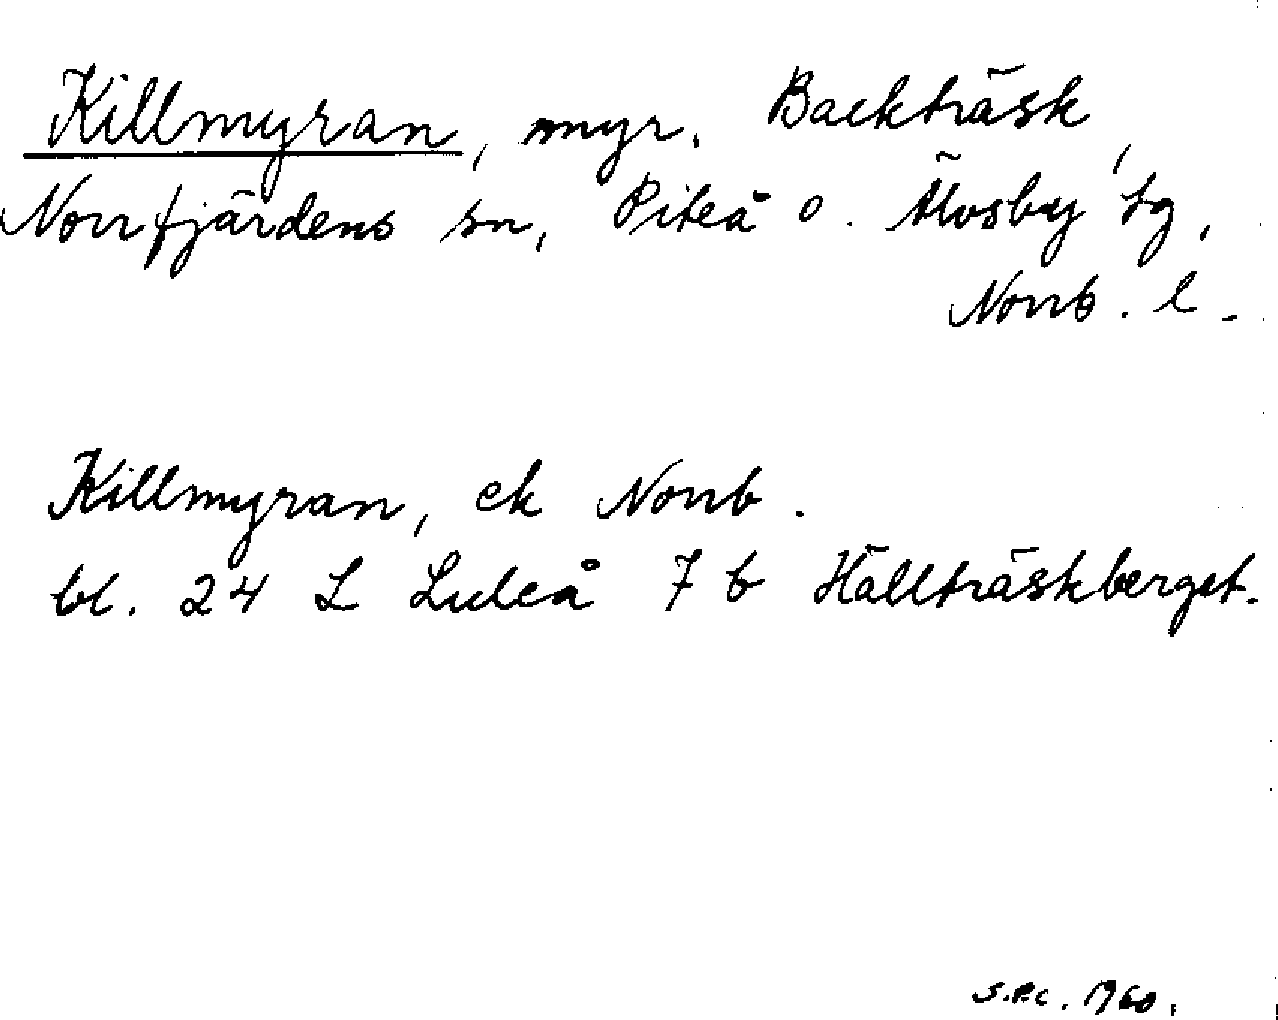 Killmyran, myr. Backträsk,
Norrfjärdens sn, Piteå o. Älvsby tg,
Norrb. l.
Killmyran, ek Norrb.
bl. 24 L Luleå 7 b Hällträskberget.
1960.